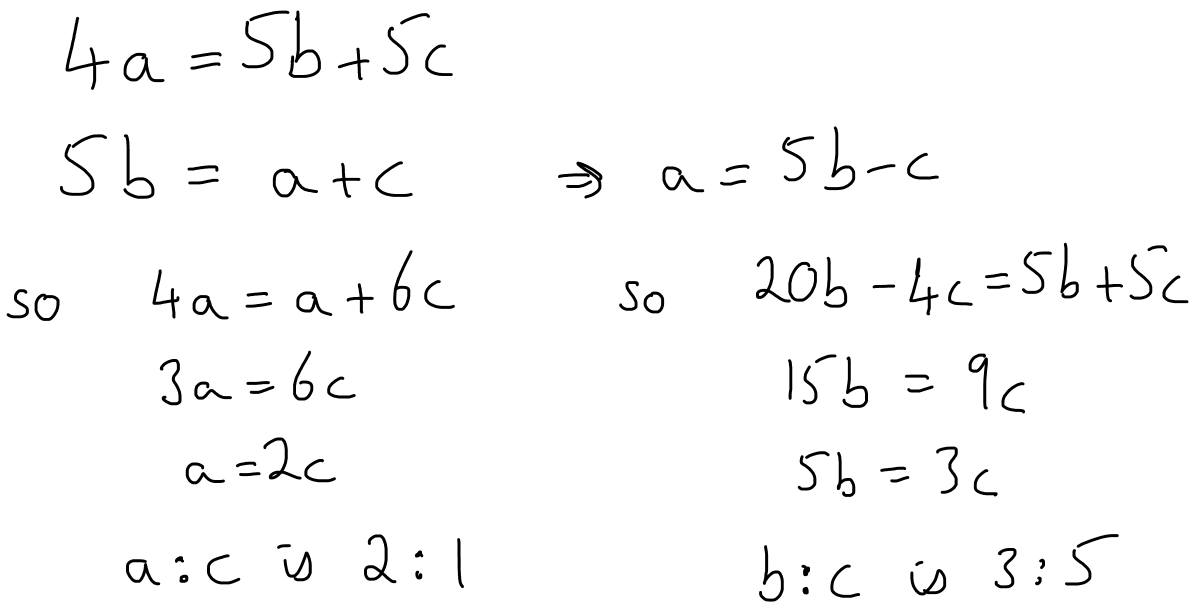 4a = 5b + 5c
5b = a + c ⇒ a = 5b - c
so 4a = a + 6c
3a = 6c
a = 2c
a : c is 2 : 1
so 20b - 4c = 5b + 5c
15b = 9c
5b = 3c
b : c is 3 : 5